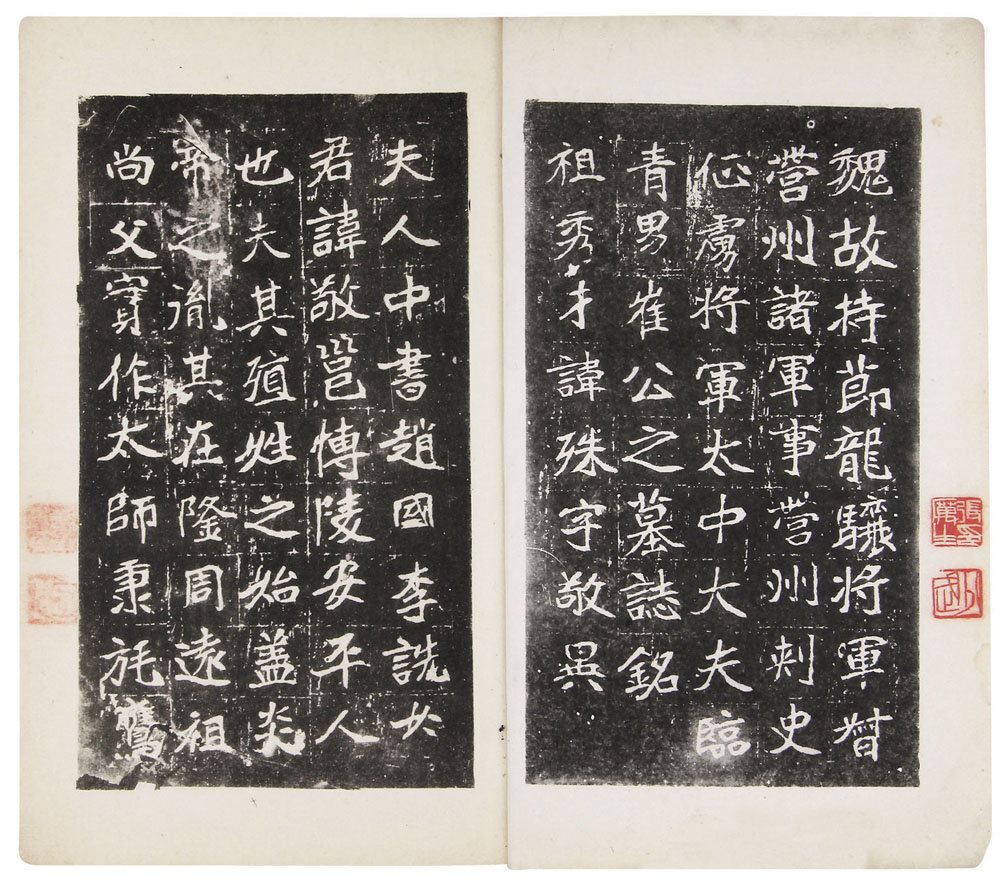 魏故持節龍驤將軍督
營州諸軍事營州刺史
征虜將軍太中大夫臨
青男崔公之墓誌銘
祖秀才諱殊字敬異
夫人中書趙國李詵女
君諱敬邕博陵安平人
也夫其殖姓之始蓋炎
帝之胤其在隆周遠祖
尚父實作太師秉旄鷹